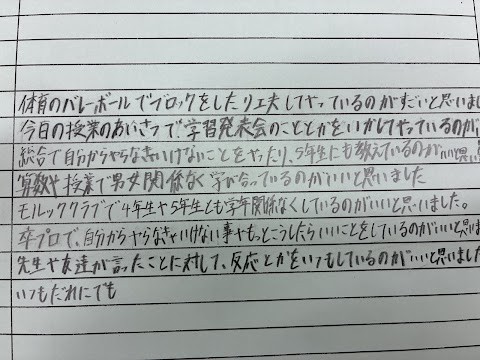 体育のバレーボールでブロックをしたり工夫してやっているのがすごいと思いまし
今日の授業のあいさつで学習発表会のこととかをいかしてやっているのが
総合で自分からやらなきいけないことをやったり、5年生にも教えているのがいいと思い
算数や授業で男女関係なく学び合っているのがいいと思いました
モルッククラブで4年生や5年生とも学年関係なくしているのがいいと思いました。
卒プロで、自分からやらなきゃいけない事やもっとこうしたらいいことをしているのがいいと思いま
先生や友達が言ったことに対して、反応とかをいつもしているのがいいと思いました
いつもだれにでも